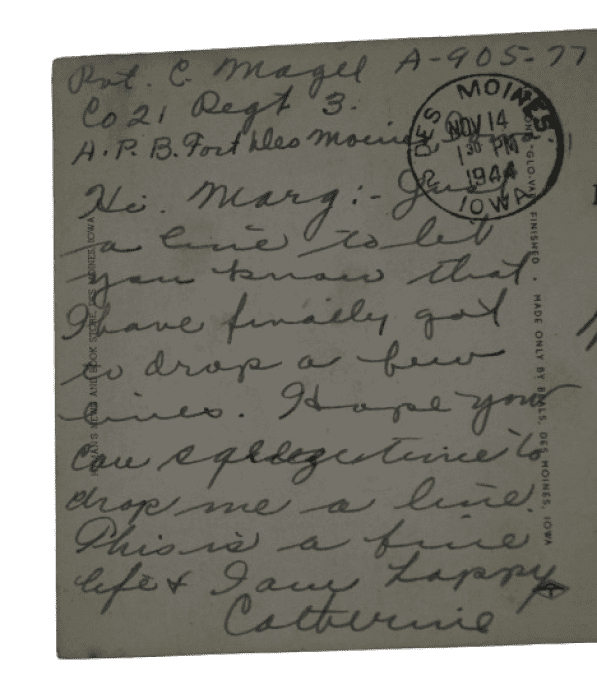 Pvt. C. Magel A-905-77
Co 21 Regt 3.
A.P.B. Fort Des Moines
DES MOINES,
NOV 14
1 30 PM
1944
IOWA
Hi. Marg:- Just
a line to let
you know that
I have finally got
to drop a few
lines. Hope you
can time to
drop me a line.
This is a fine
life & I am happy
Catherine
NEWS AND BOOK STORE, DES MOINES, IOWA
FINISHED • MADE ONLY BY BEALS, DES MOINES, IOWA